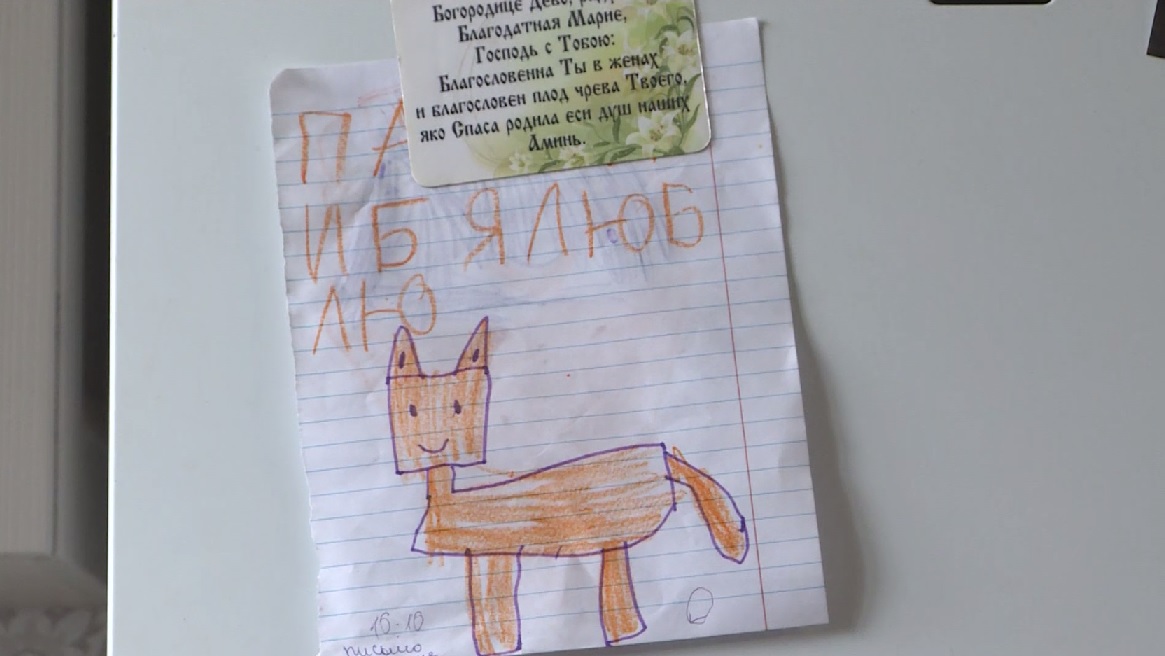 Богородице Дево,
Благодатная Марие,
Господь с Тобою:
Благословенна Ты в женах
и благословен плод чрева Твоего,
яко Спаса родила еси душ наших
Аминь.
ПА
И Б Я ЛЮБ
ЛЮ
16-10
письмо